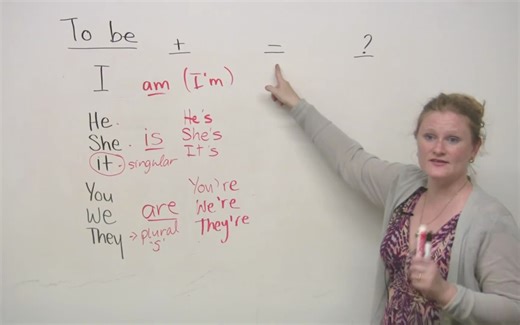 To be + = ?
I am (I'm)
He. He's
She. is She's
it. singular It's
You You're
We are We're
They → plural They're
'S'